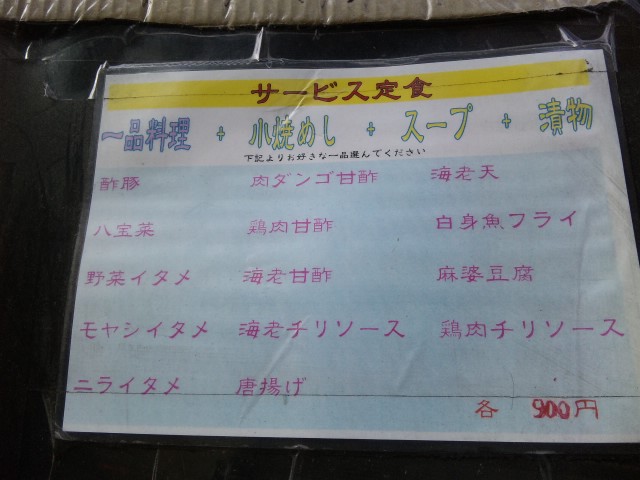 サービス定食
一品料理 + 小焼めし + スープ + 漬物
下記よりお好きな一品選んでください
酢豚 肉ダンゴ甘酢 海老天
八宝菜 鶏肉甘酢 白身魚フライ
野菜イタメ 海老甘酢 麻婆豆腐
モヤシイタメ 海老チリソース 鶏肉チリソース
ニライタメ 唐揚げ
各 900円